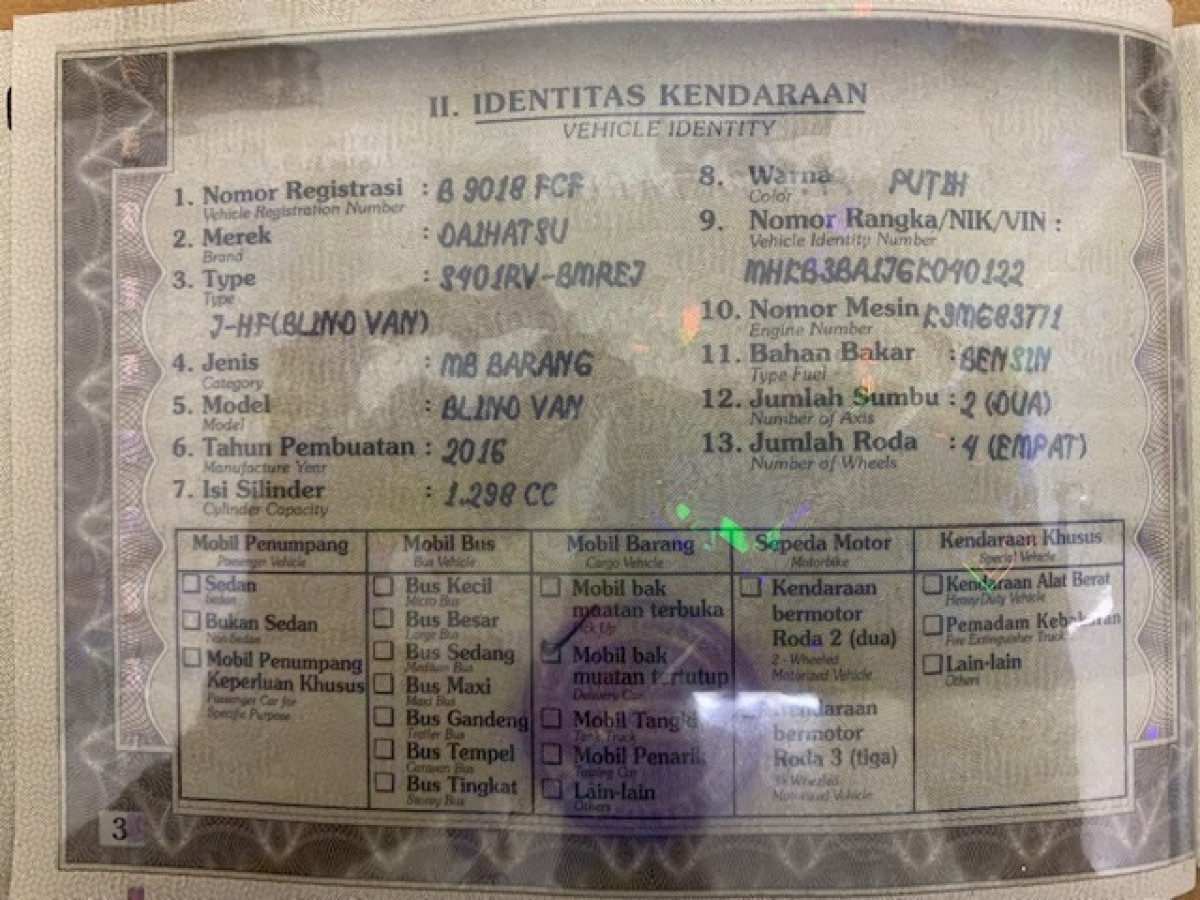 II. IDENTITAS KENDARAAN
VEHICLE IDENTITY
1. Nomor Registrasi : B 9018 FCF
Vehicle Registration Number
2. Merek : DAIHATSU
Brand
3. Type : S401RV-BMREJ
Type
J-HF(BLIND VAN)
4. Jenis : MB BARANG
Category
5. Model : BLIND VAN
Model
6. Tahun Pembuatan : 2016
Manufacture Year
7. Isi Silinder : 1.298 CC
Cylinder Capacity
8. Warna PUTIH
Color
9. Nomor Rangka/NIK/VIN :
Vehicle Identity Number
MHKB3BA1JGK040122
10. Nomor Mesin K3MG83771
Engine Number
11. Bahan Bakar : BENSIN
Type Fuel
12. Jumlah Sumbu : 2 (DUA)
Number of Axis
13. Jumlah Roda : 4 (EMPAT)
Number of Wheels
Mobil Penumpang
Passenger Vehicle
Sedan
Sedan
Bukan Sedan
Non Sedan
Mobil Penumpang
Keperluan Khusus
Passenger Car for
Specific Purpose
Mobil Bus
Bus Vehicle
Bus Kecil
Micro Bus
Bus Besar
Large Bus
Bus Sedang
Medium Bus
Bus Maxi
Maxi Bus
Bus Gandeng
Trailer Bus
Bus Tempel
Caravan Bus
Bus Tingkat
Storey Bus
Mobil Barang
Cargo Vehicle
Mobil bak
muatan terbuka
Pick Up
Mobil bak
muatan tertutup
Delivery Car
Mobil Tangki
Tank Truck
Mobil Penarik
Towing Car
Lain-lain
Others
Sepeda Motor
Motorbike
Kendaraan
bermotor
Roda 2 (dua)
2 - Wheeled
Motorized Vehicle
Kendaraan
bermotor
Roda 3 (tiga)
Wheeled
Motorized Vehicle
Kendaraan Khusus
Special Vehicle
Kendaraan Alat Berat
Heavy Duty Vehicle
Pemadam Kebakaran
Fire Extinguisher Truck
Lain-lain
Others
3